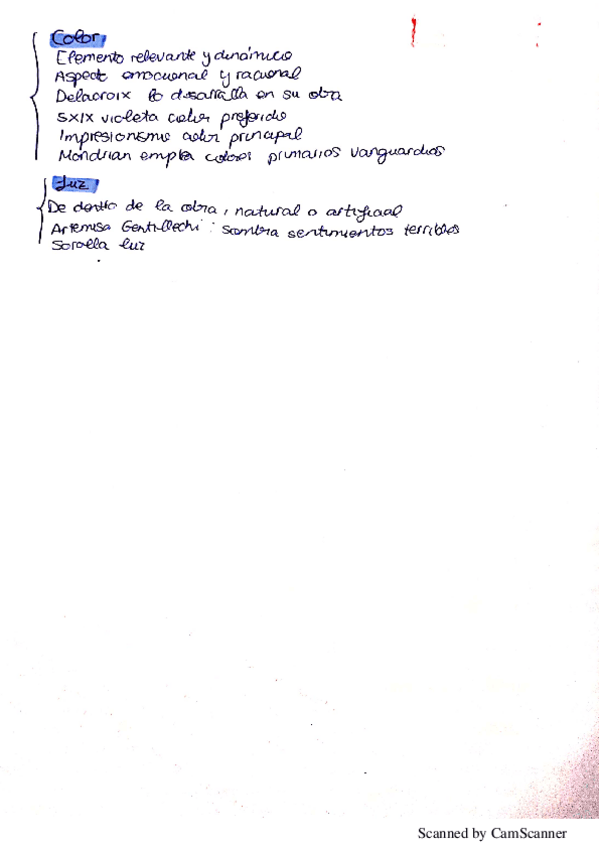 Color
Elemento relevante y dinámico
Aspecto emocional y racional
Delacroix lo desarrolla en su obra
SXIX violeta color preferido
Impresionismo color principal
Mondrian emplea colores primarios vanguardias
Luz
De dentro de la obra, natural o artificial
Artemisa Gentillechi: sombra sentimientos terribles
Sorolla luz
Scanned by CamScanner